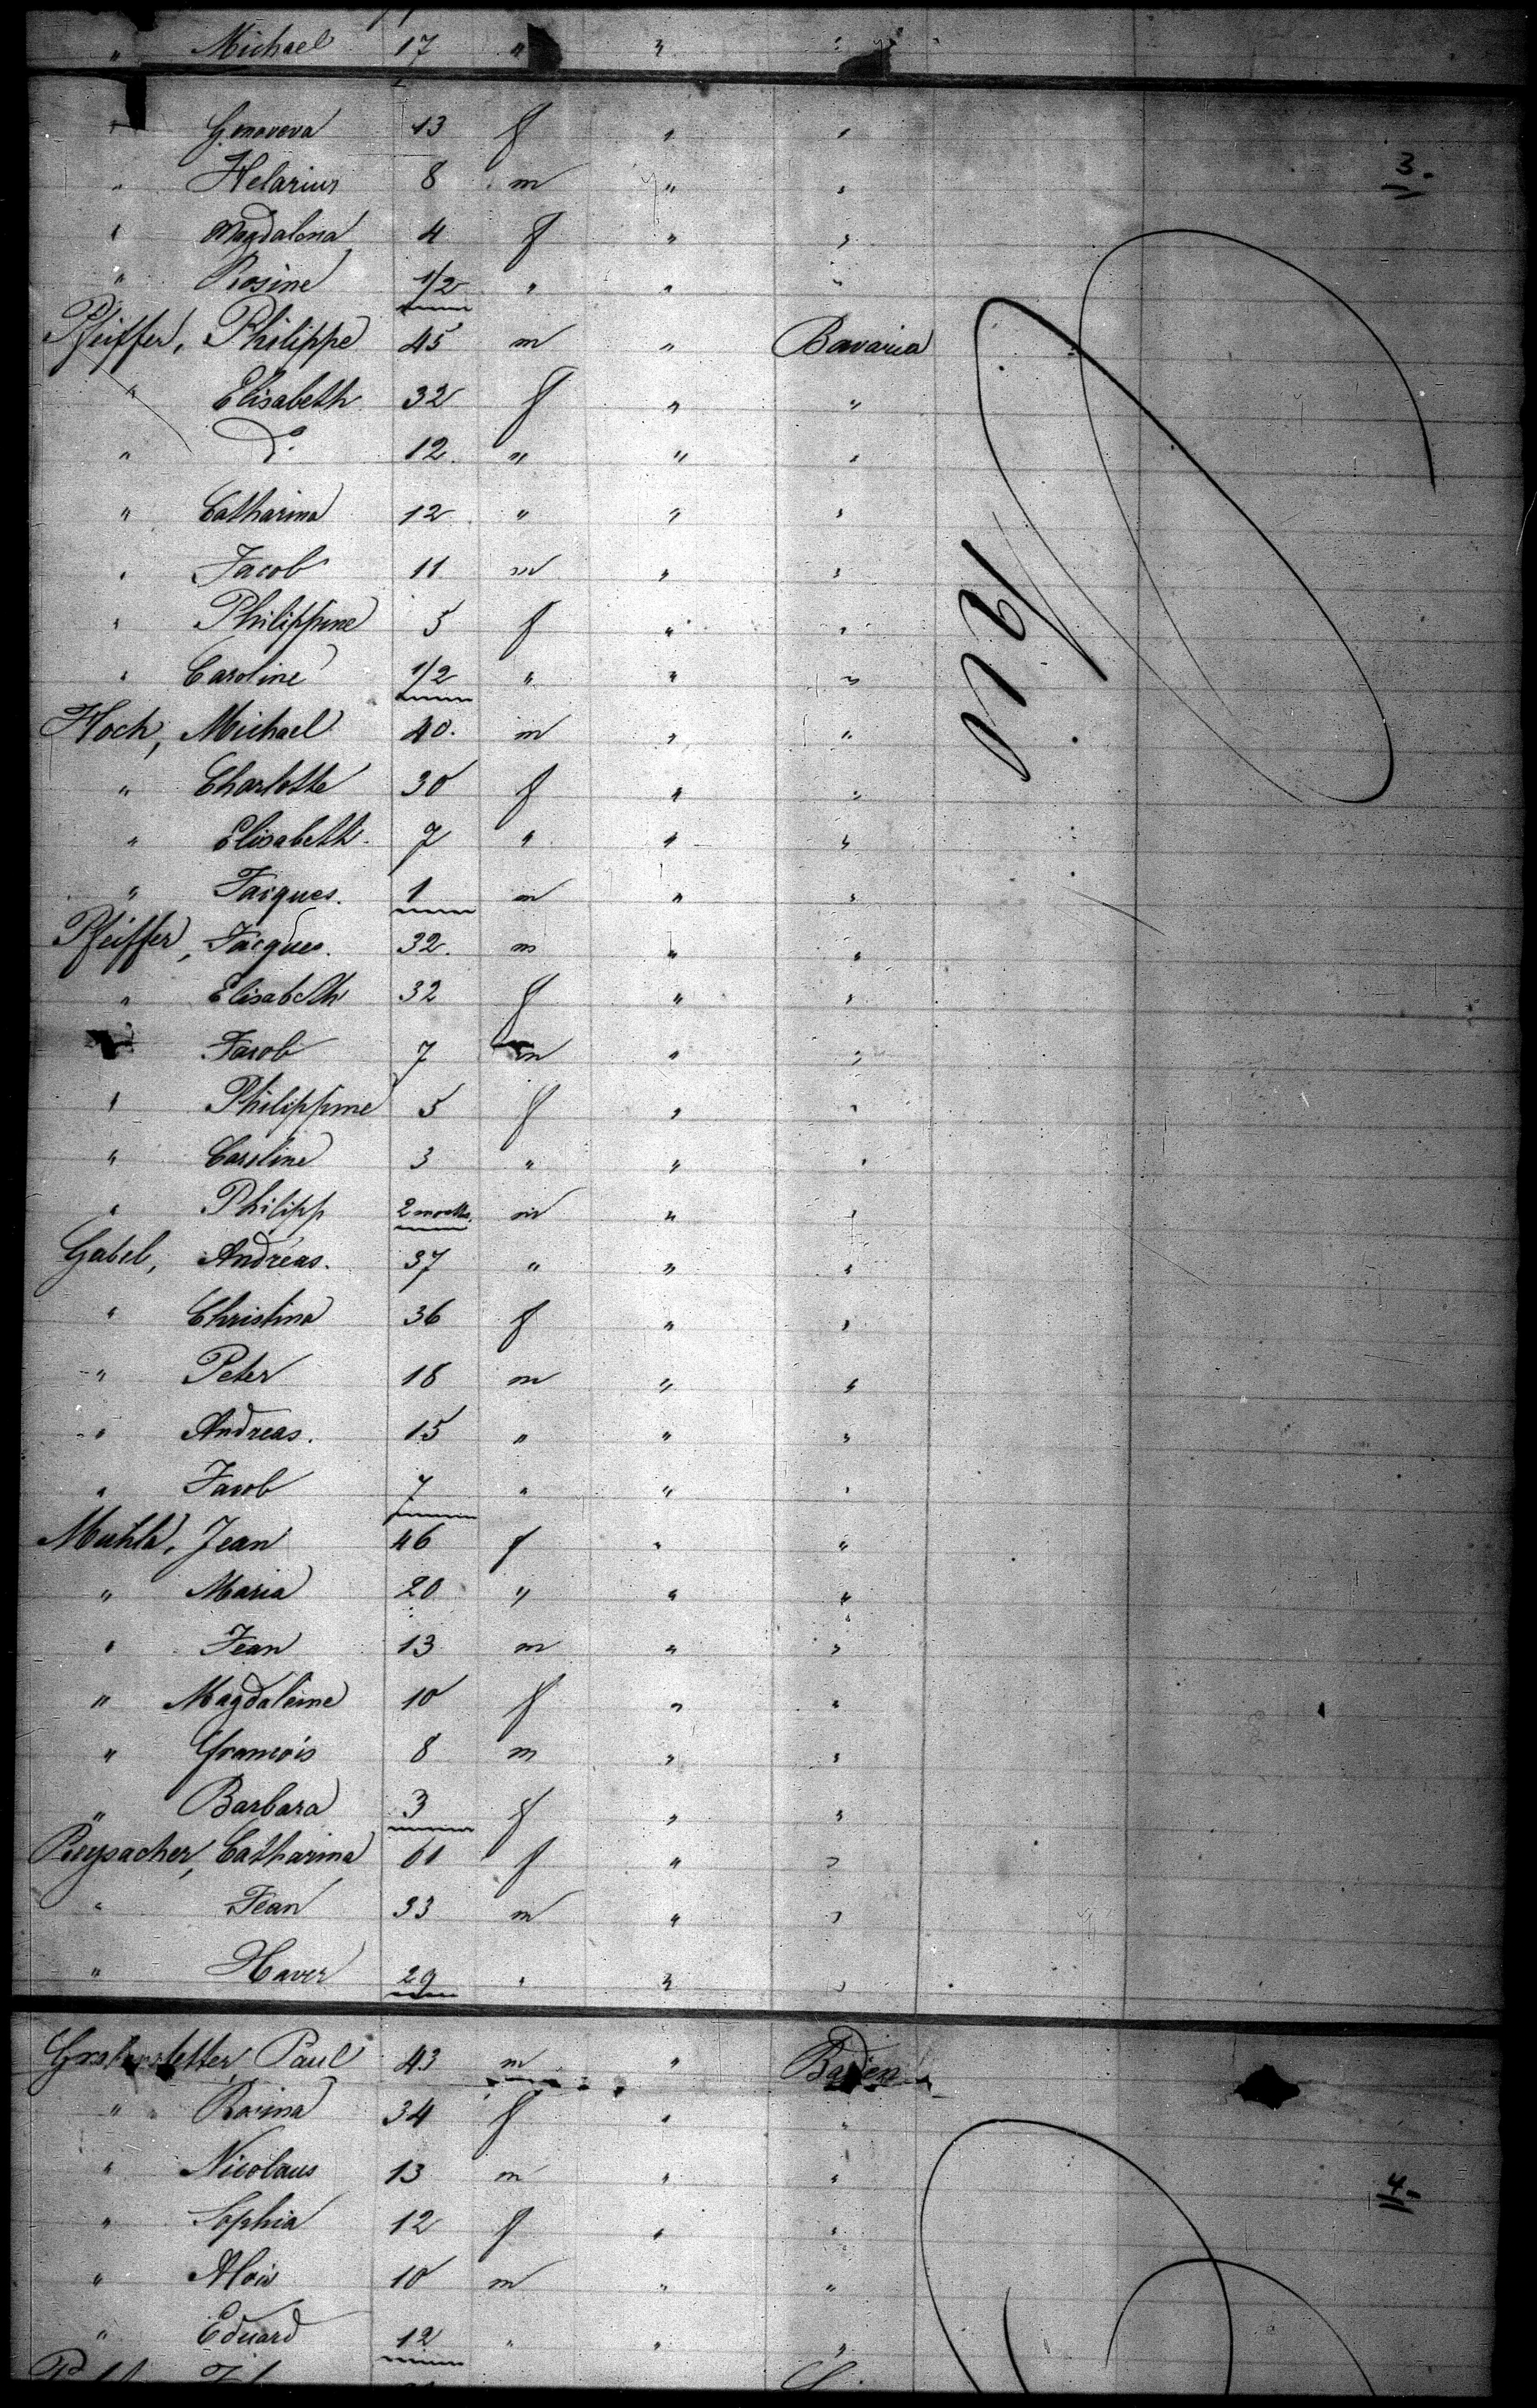 " Michael 17 " " "
" Genoveva 13 f " "
3.
" Helarius 8 m " "
" Magdalena 4 f " "
" Rosine 1/2 " " "
Pfeiffer, Philippe 45 m " Bavaria
" Elisabeth 32 f " "
" Do 12 " " "
" Catharina 12 " " "
" Jacob 11 m " "
" Philippine 5 f " "
" Caroline 1/2 " " "
Hoch, Michael 40. m " "
" Charlotte 30 f " "
" Elisabeth 7 " " "
" Jacques. 1 m " "
Pfeiffer, Jacques. 32. m " "
" Elisabeth 32 f " "
" Jacob 7 m " "
" Philippine 5 f " "
" Caroline 3 " " "
" Philipp 2 months. m " "
Gabel, Andreas. 37 " " "
" Christina 36 f " "
" Peter 18 m " "
" Andreas. 15 " " "
" Jacob 7 " " "
Jean 46 f " "
" Maria 20 " " "
" Jean 13 m " "
" Magdaleine 10 f " "
" Francois 8 m " "
" Barbara 3 f " "
Reysacher, Catharina 61 f " "
" Jean 33 m " "
" Xaver 29 " " "
Paul 43 m " Baden
" Rosina 34 f " "
" Nicolaus 13 m " "
4.
" Sophia 12 f " "
" Alois 10 m " "
" Eduard 12 " " "